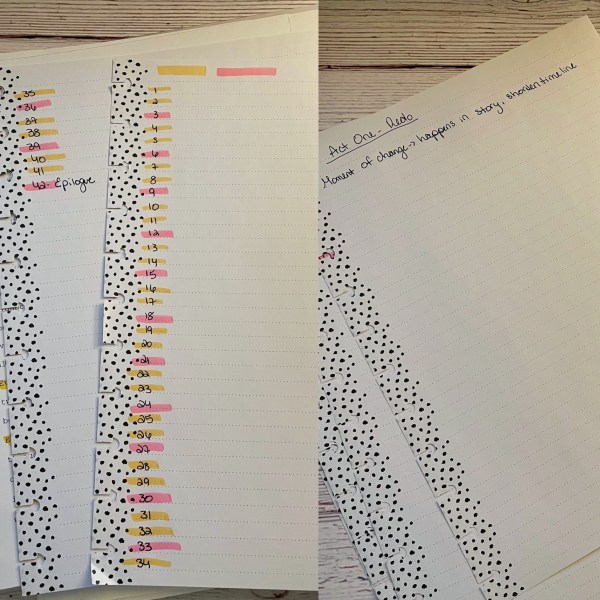 35
36
37
38
39
40
41
42- Epilogue
1
2
3
4
5
6
7
8
9
10
11
12
13
14
15
16
17
18
19
20
21
22
23
24
25
26
27
28
29
30
31
32
33
34
Act One- Redo
Moment of change→ happens in story. shorten timeline